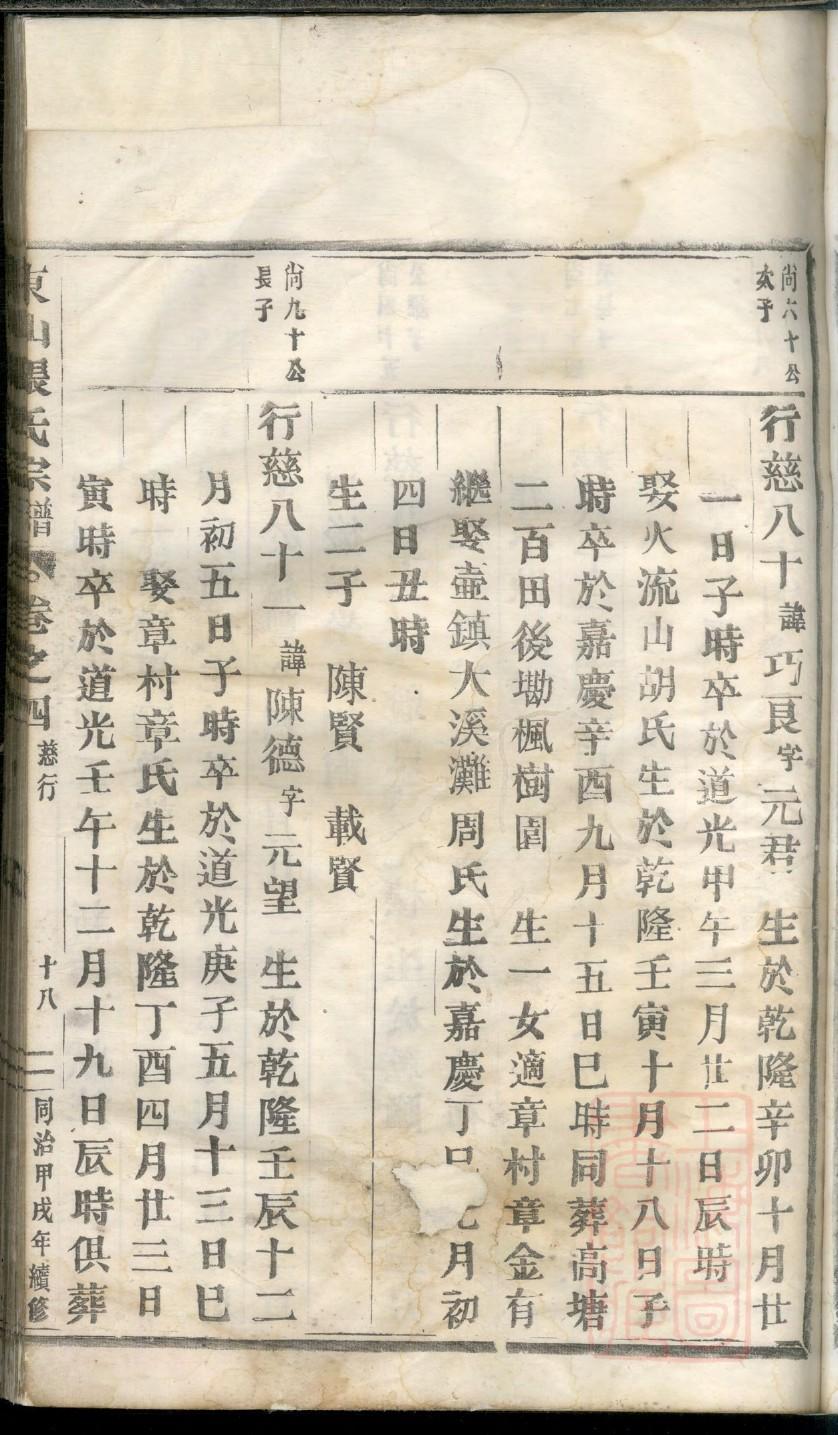 尚六十公
次子
行慈八十諱巧良字元君 生於乾隆辛卯十月廿
一日子時卒於道光甲午三月廿二日辰時
娶火流山胡氏生於乾隆壬寅十月十八日子
時卒於嘉慶辛酉九月十五日巳時同葬高塘
二百田後墈楓樹園 生一女適章村章金有
繼娶壶鎮大溪灘周氏生於嘉慶丁 月初
四日丑時
生二子 陳賢 載賢
尚九十公
長子
行慈八十一諱陳德字元望 生於乾隆壬辰十二
月初五日子時卒於道光庚子五月十三日巳
時 娶章村章氏生於乾隆丁酉四月廿三日
寅時卒於道光壬午十二月十九日辰時俱葬
東山張氏宗譜 卷之四 慈行 十八 同治甲戌年續修